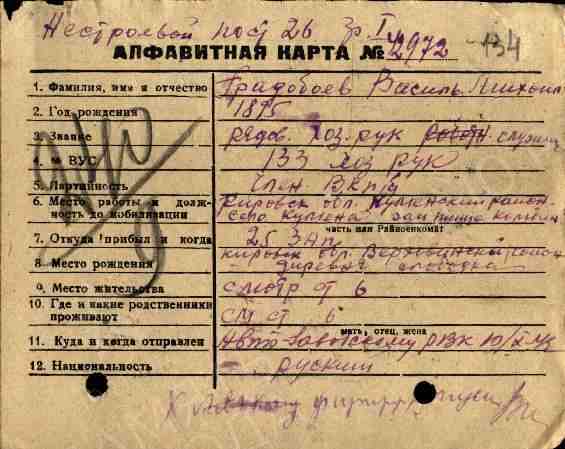 Нестроевой пост 26 гр. I
АЛФАВИТНАЯ КАРТА № 2972 134
1. Фамилия, имя и отчество Градобоев Василь Михаил
2. Год рождения 1895
3. Звание рядов. хоз. рук
4. № ВУС 133 хоз рук
5. Партийность Член ВКП/б
6. Место работы и долж- Кировск обл. Куменский район
ность до мобилизации село Кумена зам
часть или Райвоенкомат
7. Откуда прибыл и когда 25 ЗАП
кировск обл. район
8. Место рождения деревня
9. Место жительства смотр ст 6
10. Где и какие родственники
проживают см ст 6
мать, отец, жена
11. Куда и когда отправлен Авто Заводскому РВК
12. Национальность руский